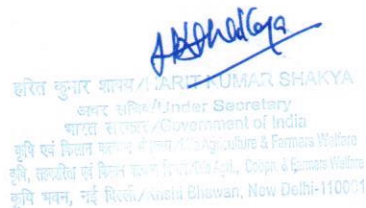 हरित कुमार शाक्य/HARIT KUMAR SHAKYA
अवर सचिव/Under Secretary
भारत सरकार/Government of India
कृषि एवं किसान कल्याण Agriculture & Farmers Welfare
कृषि, सहकारिता एवं किसान कल्याण Agri., Coopn. & Farmers Welfare
कृषि भवन, नई दिल्ली/Krishi Bhawan, New Delhi-110001